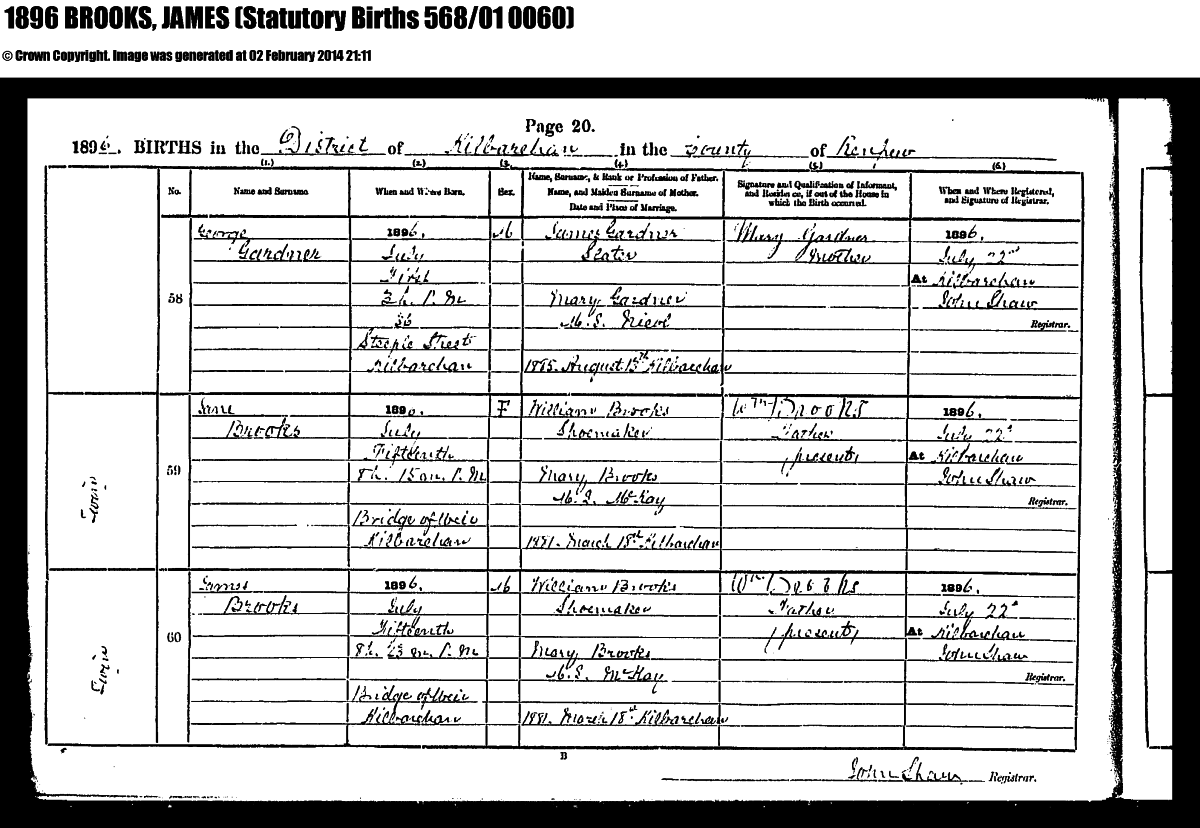 1896 BROOKS, JAMES (Statutory Births 568/01 0060)
© Crown Copyright. Image was generated at 02 February 2014 21:11
Page 20.
1896. BIRTHS in the District of Kilbarchan in the County of Renfrew
(1.) (2.) (3.) (4.) (5.) (6.)
No.
Name and Surname
When and Where Born.
Sex.
Name, Surname, & Rank or Profession of Father.
Name, and Maiden Surname of Mother.
Date and Place of Marriage.
Signature and Qualification of Informant,
and Residence, if out of the House in
which the Birth occurred.
When and Where Registered,
and Signature of Registrar.
58
George
Gardner
1896.
July
First
3 h. P. M
36
Steeple Street
Kilbarchan
M
James Gardner
Slater
Mary Gardner
M. S. Nicol
1885. August 15th Kilbarchan
Mary Gardner
Mother
1896.
July 22nd
At Kilbarchan
John Shaw
Registrar.
Twin
59
Jane
Brooks
1896.
July
Fifteenth
8 h. 15 m. P. M
Bridge of Weir
Kilbarchan
F
William Brooks
Shoemaker
Mary Brooks
M. S. McKay
1881. March 18th Kilbarchan
Wm Brooks
Father
(present)
1896.
July 22d
At Kilbarchan
John Shaw
Registrar.
Twin
60
James
Brooks
1896.
July
Fifteenth
8 h. 23 m. P. M
Bridge of Weir
Kilbarchan
M
William Brooks
Shoemaker
Mary Brooks
M. S. McKay
1881. March 18th Kilbarchan
Wm Brooks
Father
(present)
1896.
July 22d
At Kilbarchan
John Shaw
Registrar.
B
John Shaw Registrar.